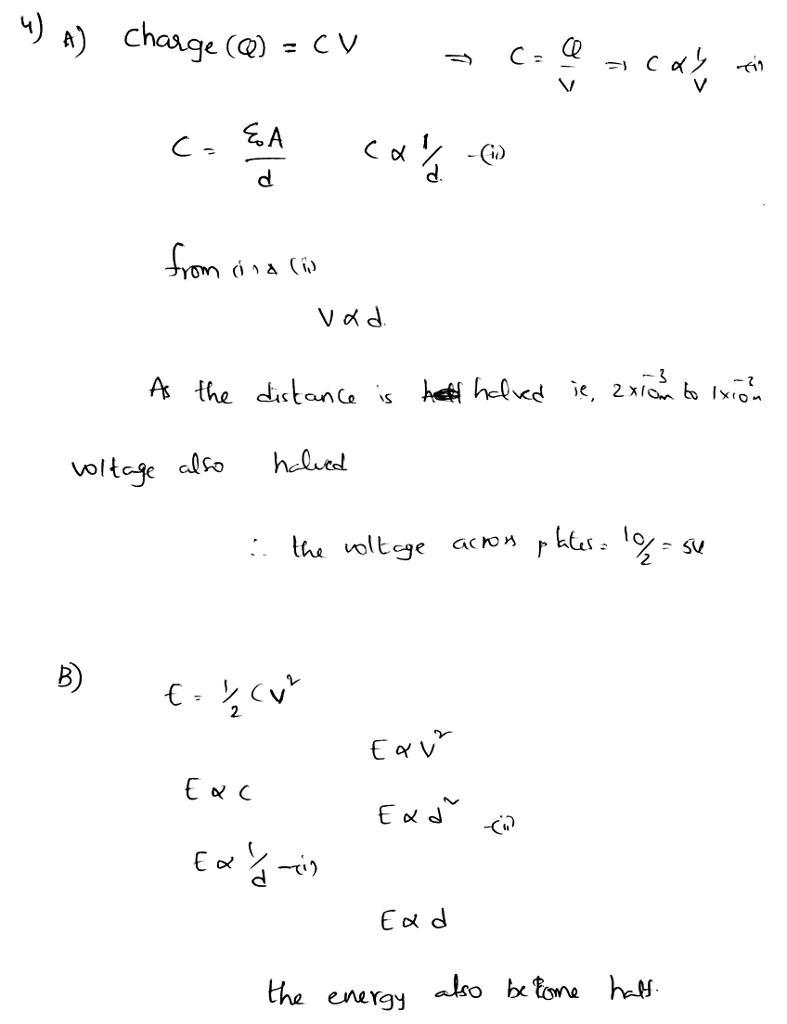 4) A) Charge (Q) = CV ⇒ C = Q/V ⇒ C ∝ 1/V -(i)
C = ε₀A/d C ∝ 1/d. -(ii)
from (i) & (ii)
V ∝ d.
As the distance is half halved ie, 2×10⁻³m to 1×10⁻²m
voltage also halved
∴ the voltage across plates = 10/2 = 5V
B) E = 1/2 CV²
E ∝ V²
E ∝ C
E ∝ d² -(ii)
E ∝ 1/d -(i)
E ∝ d
the energy also become half.